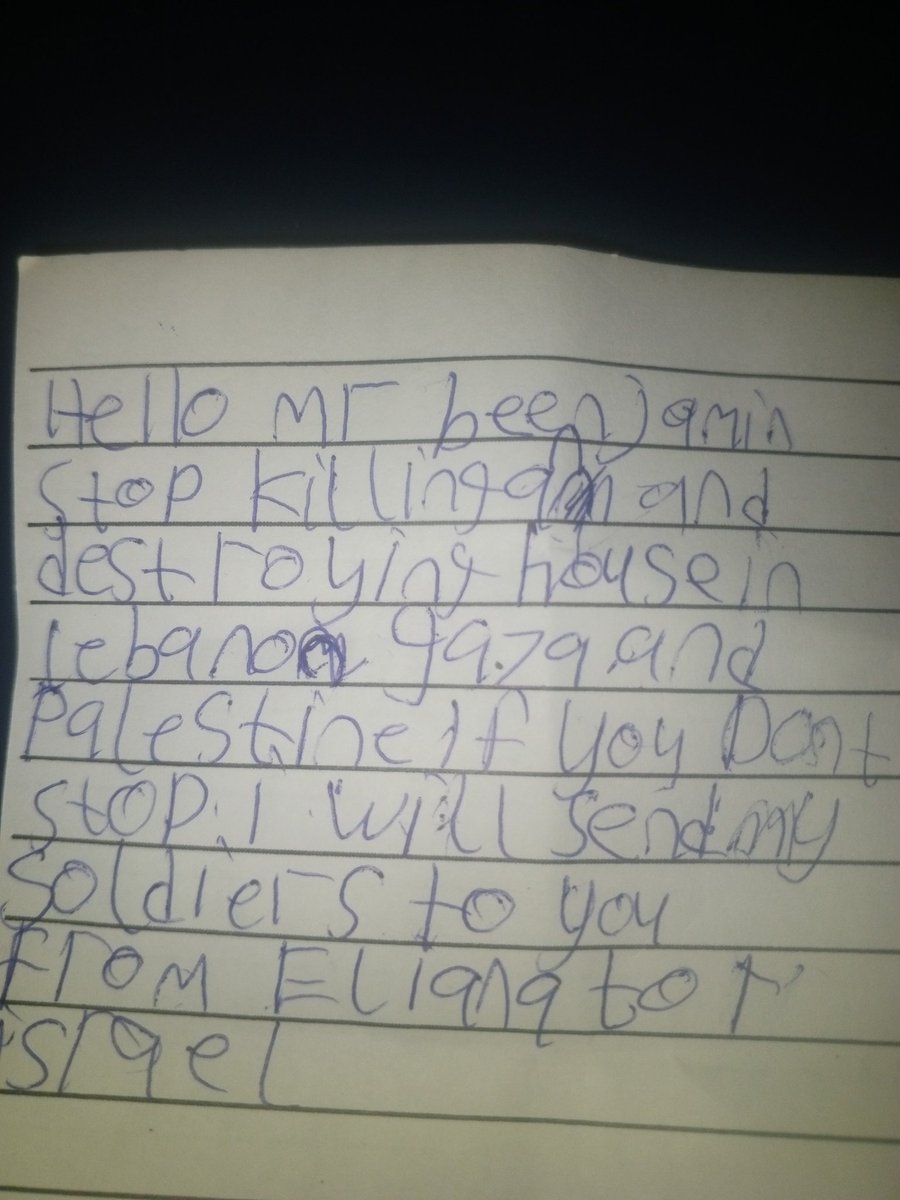 Hello mr beenjamin
stop killing and
destroying house in
lebanon gaza and
Palestine if you Dont
stop i will send my
soldiers to you
From Eliana to
israel